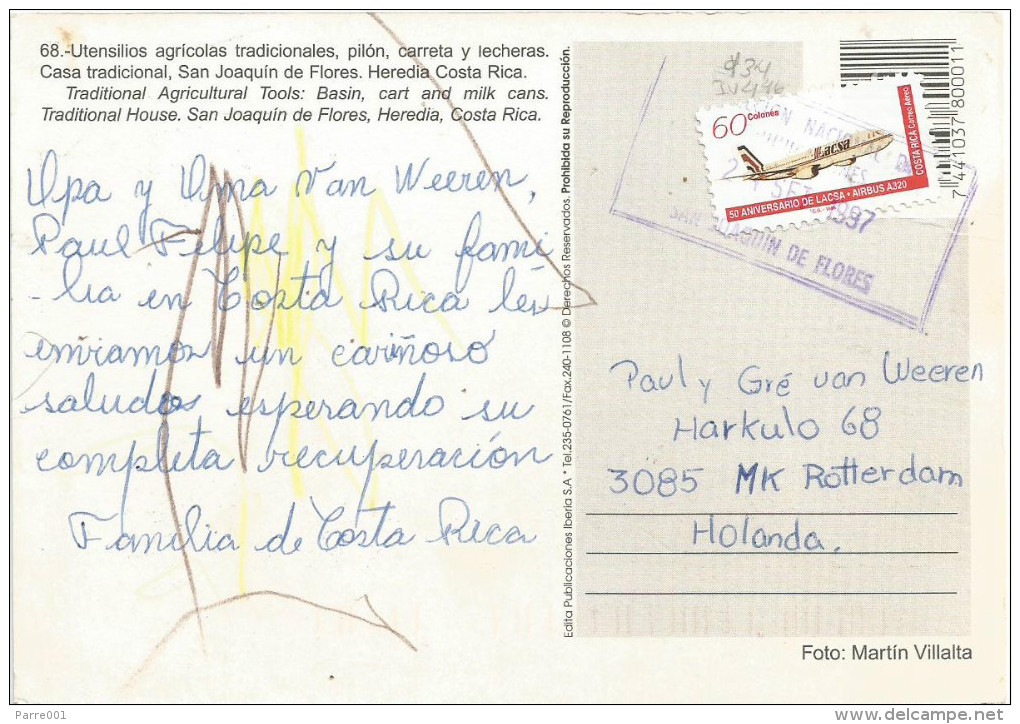 68.-Utensilios agrícolas tradicionales, pilón, carreta y lecheras.
Casa tradicional, San Joaquín de Flores. Heredia Costa Rica.
Traditional Agricultural Tools: Basin, cart and milk cans.
Traditional House. San Joaquín de Flores, Heredia, Costa Rica.
Opa y Oma Van Weeren,
Paul Felipe y su fami
-lia en Costa Rica les
enviamos un cariñoso
saludos esperando su
completa recuperación
Familia de Costa Rica
Edita Publicaciones Iberia S.A * Tel.235-0761/Fax.240-1108 © Derechos Reservados. Prohibida su Reproducción.
60 Colones
Lacsa
COSTA RICA Correo Aéreo
50 ANIVERSARIO DE LACSA • AIRBUS A320
SET 1997
SAN JOAQUIN DE FLORES
7 441037 800011
Paul y Gré van Weeren
Harkulo 68
3085 MK Rotterdam
Holanda.
Foto: Martín Villalta
Parre001
delcampe.net